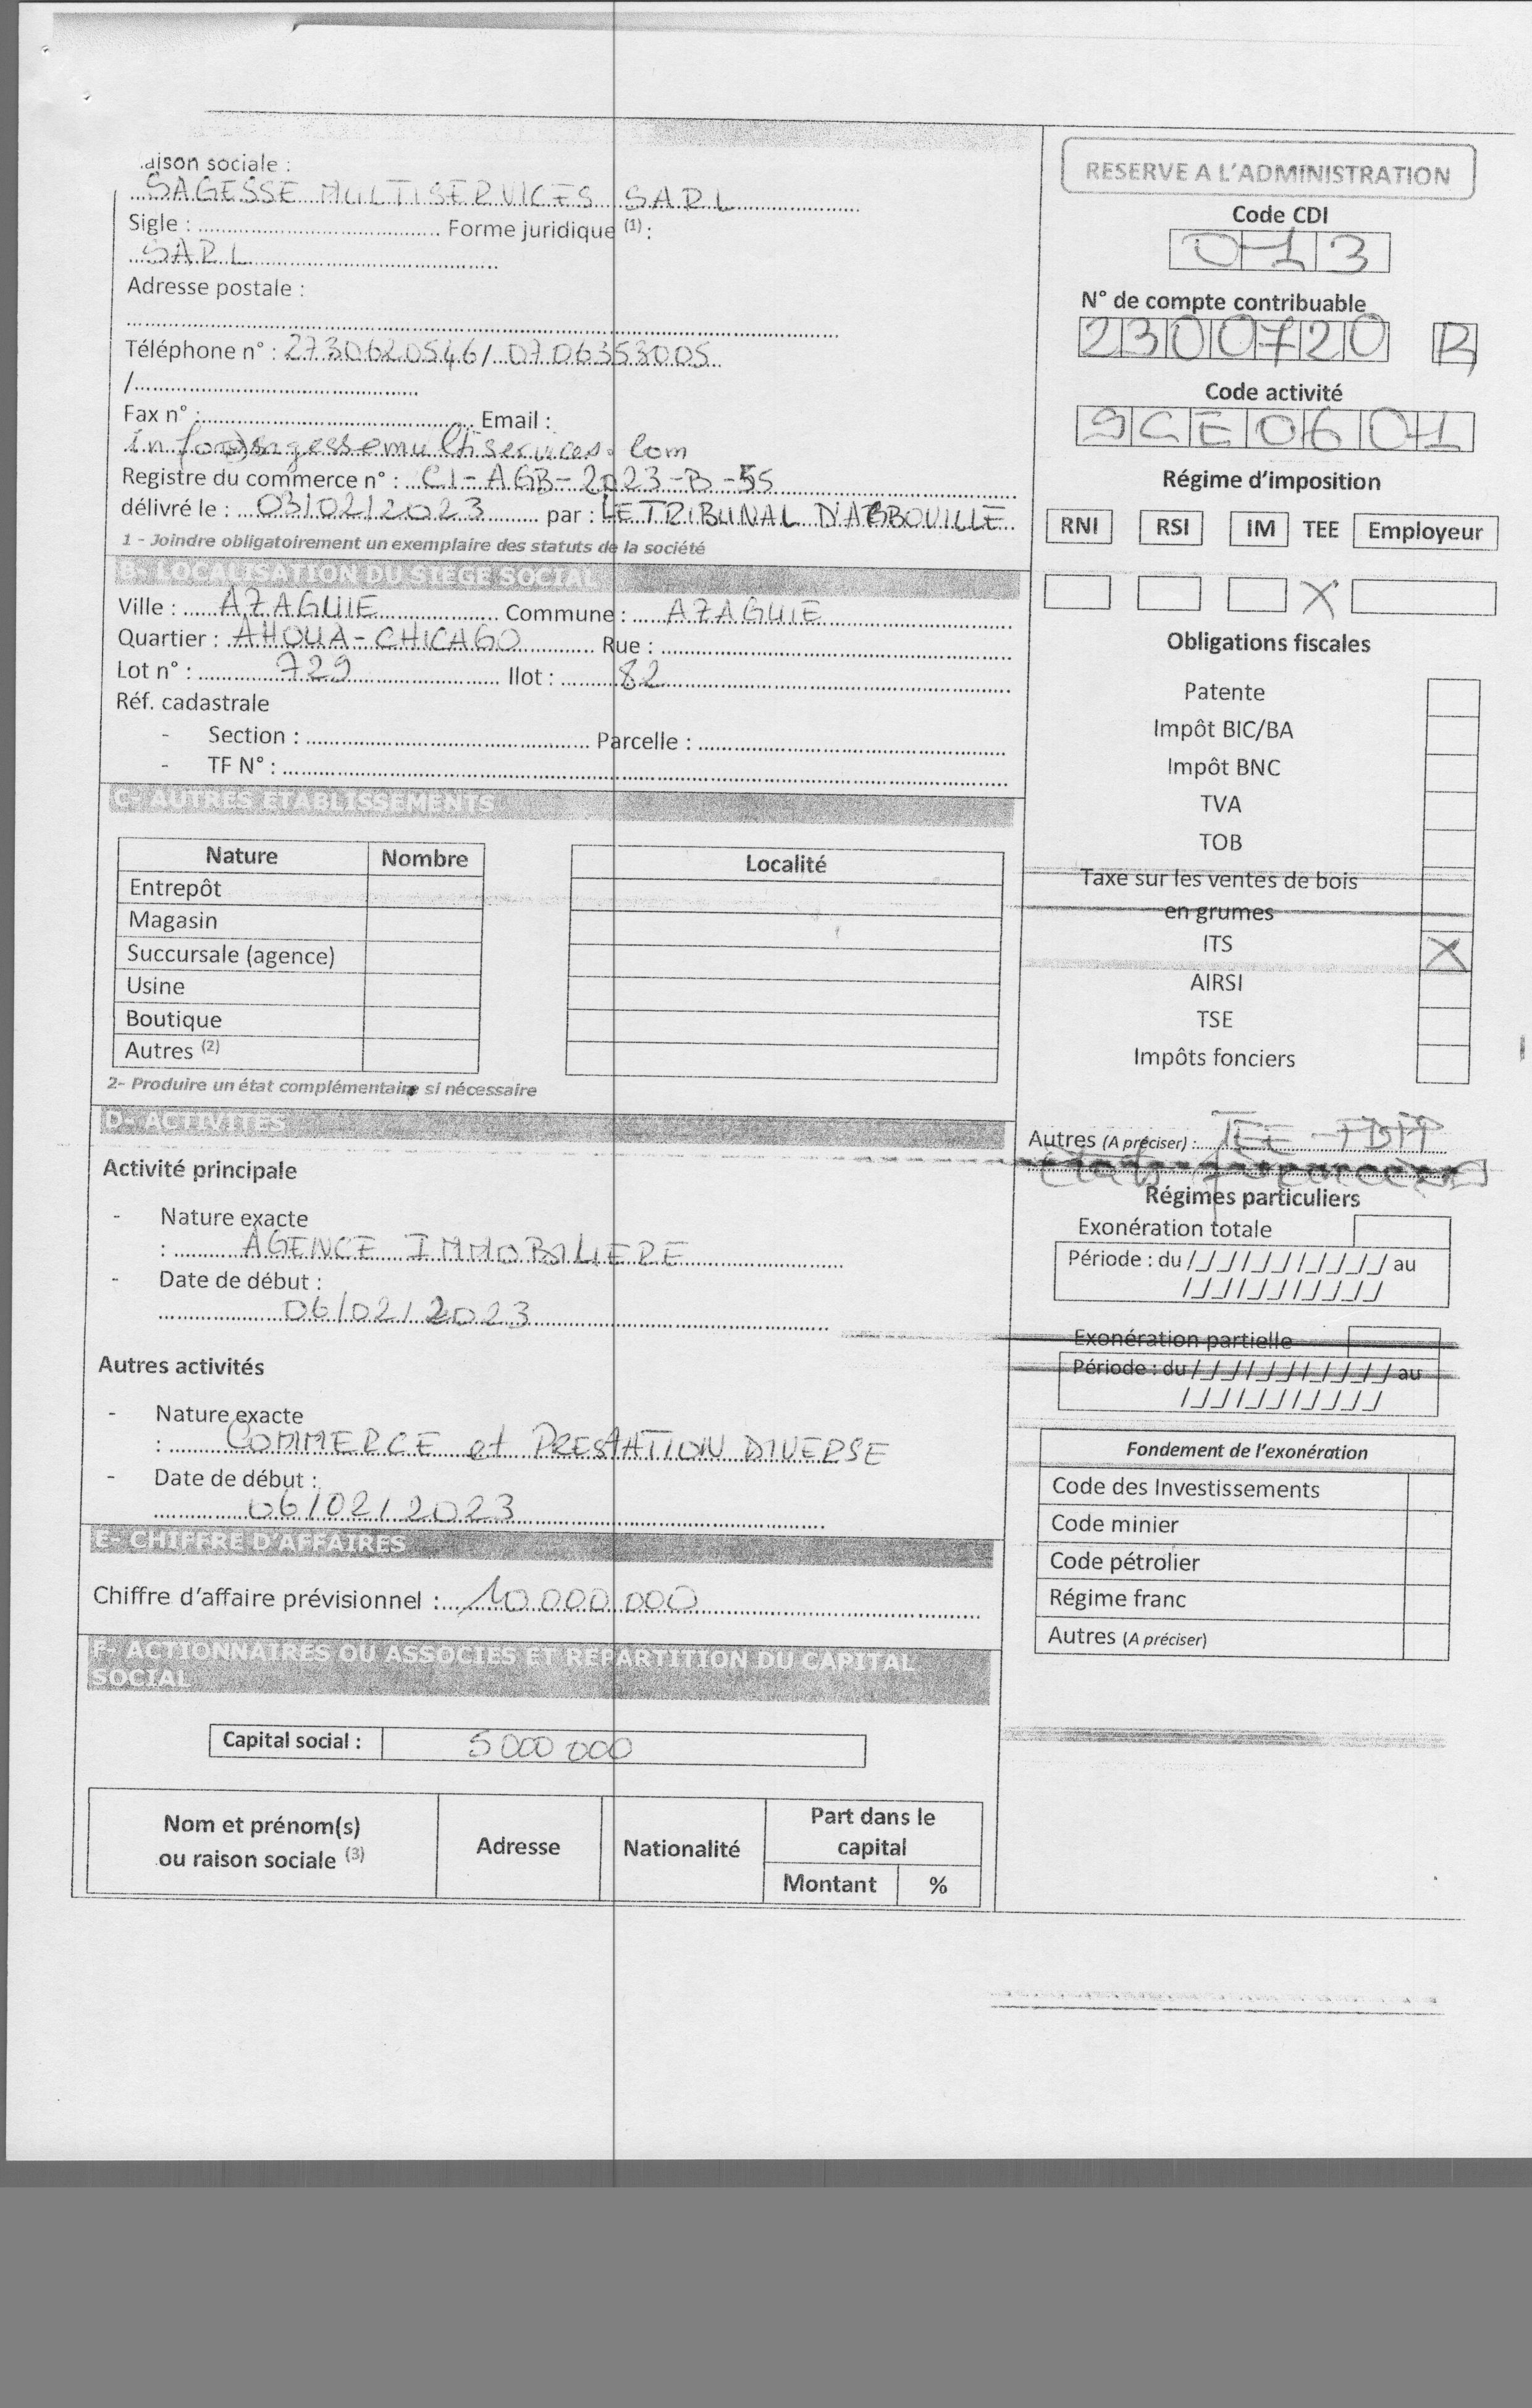 aison sociale :
SAGESSE MULTISERVICES SARL
Sigle : ........ Forme juridique (1) :
SARL
Adresse postale :
Téléphone n° : 2730620546/ 0706353005
/
Fax n° : ........ Email :
info@sagessemultiservices.com
Registre du commerce n° : CI-AGB-2023-B-55
délivré le : 03/02/2023 par : LE TRIBUNAL D'AGBOVILLE
1 - Joindre obligatoirement un exemplaire des statuts de la société
B- LOCALISATION DU SIEGE SOCIAL
Ville : AZAGUIE Commune : AZAGUIE
Quartier : AHOUA-CHICAGO Rue :
Lot n° : 729 Ilot : 82
Réf. cadastrale
- Section : ........ Parcelle :
- TF N° :
C- AUTRES ETABLISSEMENTS
Nature Nombre Localité
Entrepôt
Magasin
Succursale (agence)
Usine
Boutique
Autres (2)
2- Produire un état complémentaire si nécessaire
D- ACTIVITES
Activité principale
- Nature exacte
: AGENCE IMMOBILIERE
- Date de début :
06/02/2023
Autres activités
- Nature exacte
: COMMERCE et PRESTATION DIVERSE
- Date de début :
06/02/2023
E- CHIFFRE D'AFFAIRES
Chiffre d'affaire prévisionnel : 10 000 000
F- ACTIONNAIRES OU ASSOCIES ET REPARTITION DU CAPITAL
SOCIAL
Capital social : 5 000 000
Nom et prénom(s)
ou raison sociale (3)
Adresse
Nationalité
Part dans le
capital
Montant %
RESERVE A L'ADMINISTRATION
Code CDI
013
N° de compte contribuable
2300720 R
Code activité
9CE0601
Régime d'imposition
RNI RSI IM TEE Employeur
X
Obligations fiscales
Patente
Impôt BIC/BA
Impôt BNC
TVA
TOB
Taxe sur les ventes de bois
en grumes
ITS X
AIRSI
TSE
Impôts fonciers
Autres (A préciser) : TEE
Régimes particuliers
Exonération totale
Période : du /_/_//_/_//_/_/_/_/ au
/_/_//_/_//_/_/_/_/
Exonération partielle
Période : du /_/_//_/_//_/_/_/_/ au
/_/_//_/_//_/_/_/_/
Fondement de l'exonération
Code des Investissements
Code minier
Code pétrolier
Régime franc
Autres (A préciser)